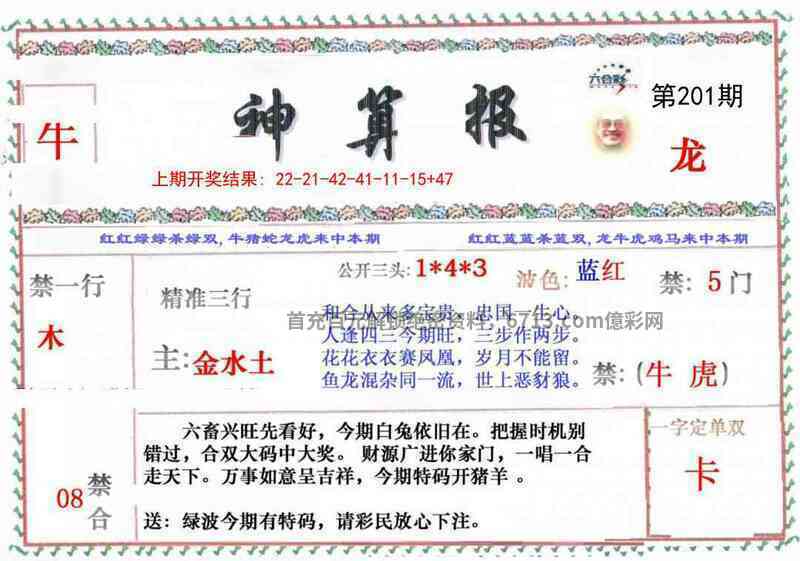 六合彩
第201期
牛
神算报
龙
上期开奖结果: 22-21-42-41-11-15+47
红红绿绿杀绿双,牛猪蛇龙虎来中本期
红红蓝蓝杀蓝双,龙牛虎鸡马来中本期
禁一行
木
精准三行
主:金水土
公开三头:1*4*3
波色:蓝红
禁:5门
和合从来多宝贵,忠国一生心。
首充百元解锁绝密资料,6713.com億彩网
人逢四三今期旺,三步作两步。
花花衣衣赛凤凰,岁月不能留。
鱼龙混杂同一流,世上恶豺狼。
禁:(牛 虎)
08
禁合
六畜兴旺先看好,今期白兔依旧在。把握时机别
错过,合双大码中大奖。 财源广进你家门,一唱一合
走天下。万事如意呈吉祥,今期特码开猪羊 。
送:绿波今期有特码,请彩民放心下注。
一字定单双
卡